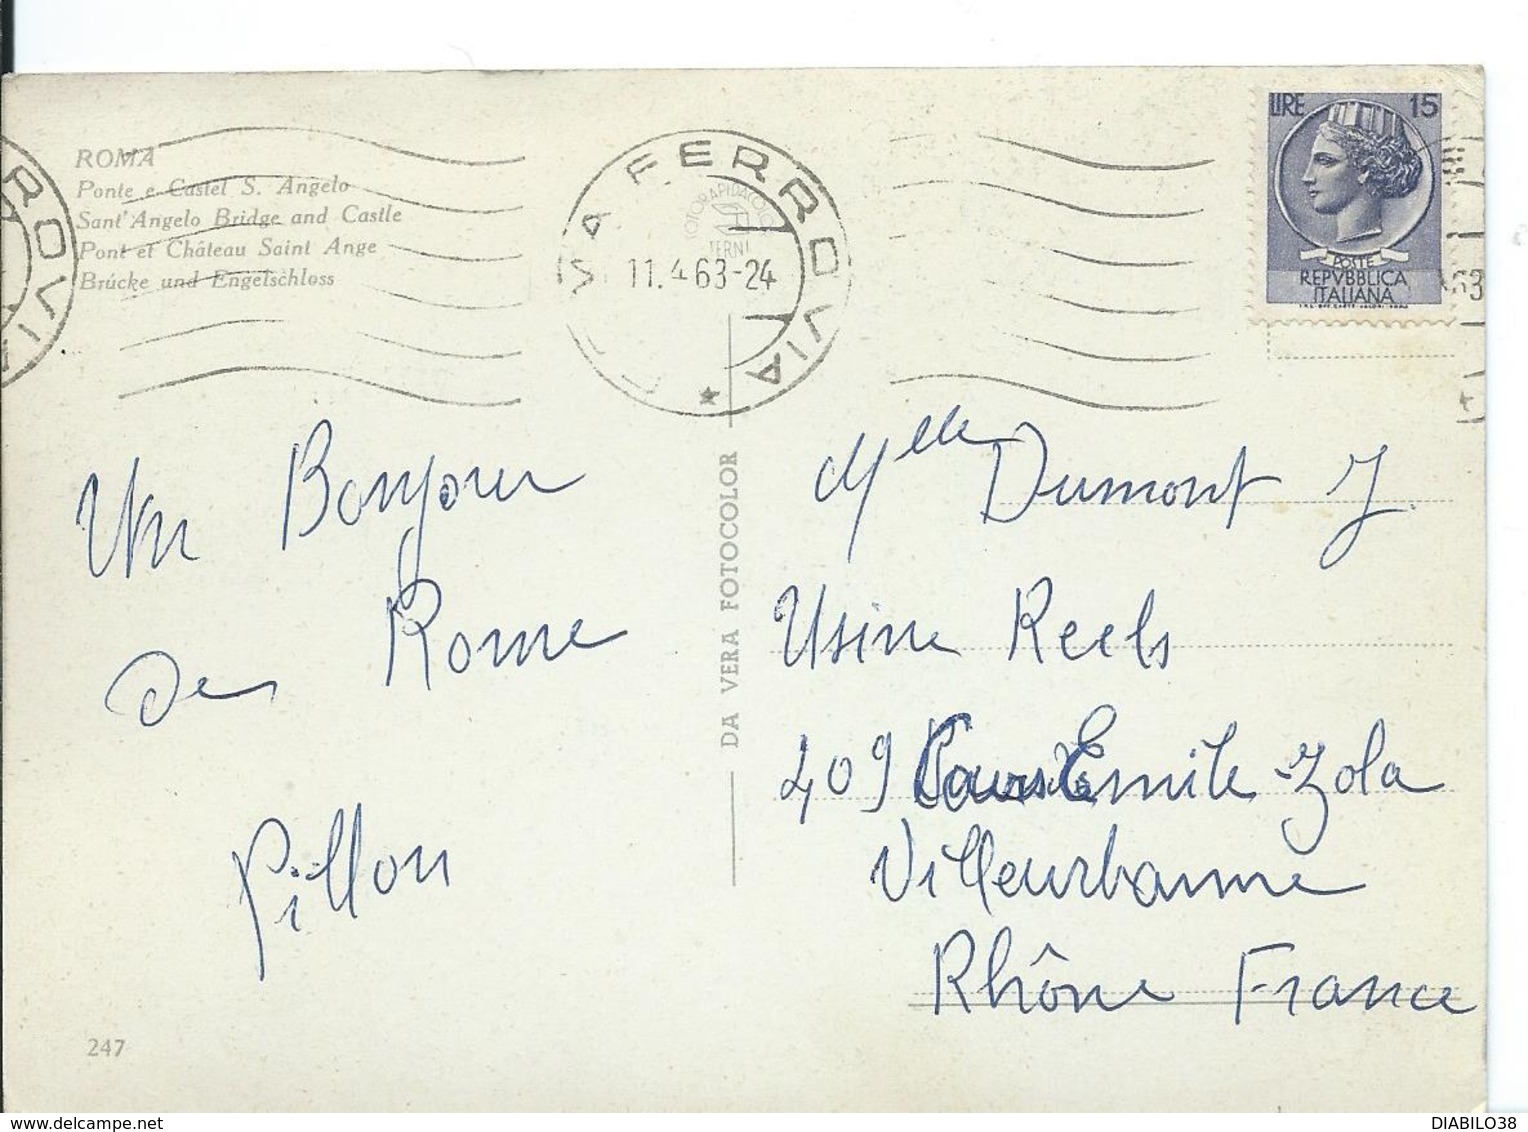 ROMA
Ponte e Castel S. Angelo
Sant'Angelo Bridge and Castle
Pont et Château Saint Ange
Brücke und Engelschloss
VIA FERROVIA
11.4.63-24
FOTORAPIDACOLOR
TERNI
LIRE 15
POSTE
REPVBBLICA
ITALIANA
63
ROVIA
Un Bonjour
De Rome
Pillon
DA VERA FOTOCOLOR
Mlle Dumont J
Usine Reels
409 Cours Emile Zola
Villeurbanne
Rhône France
247
DIABILO38